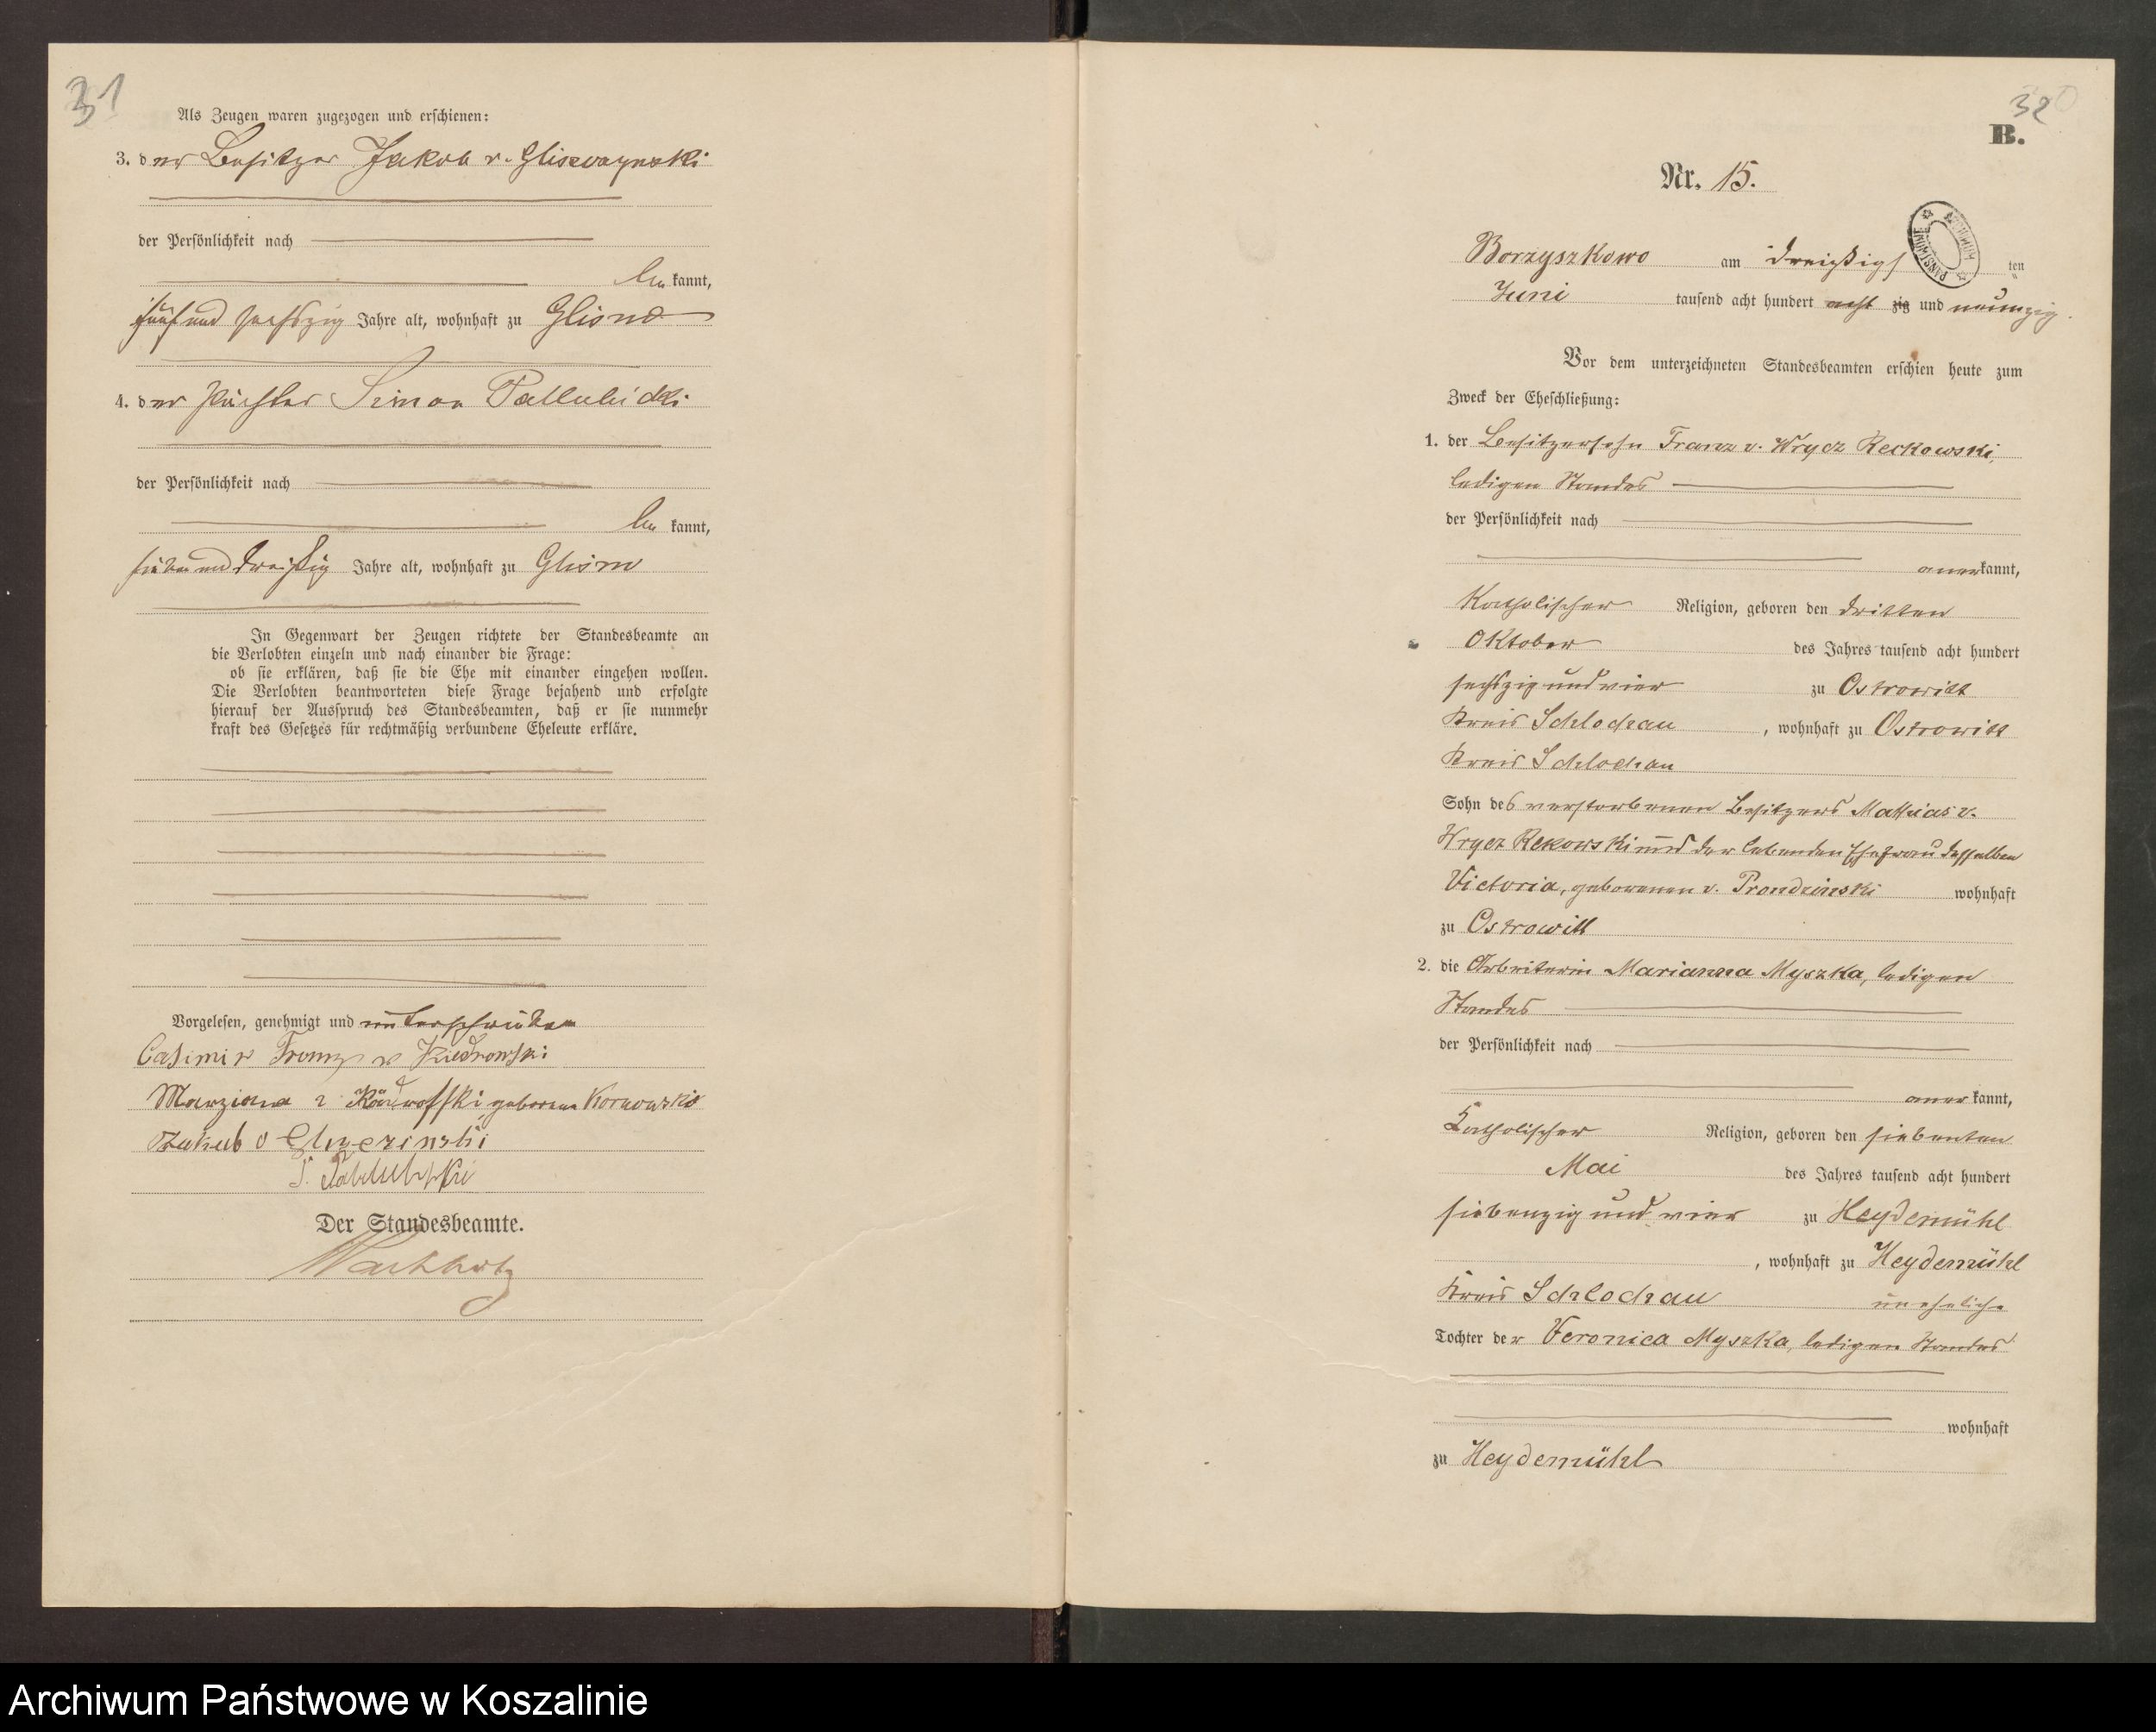 31
Als Zeugen waren zugezogen und erschienen:
3. der Besitzer Jakob v. Gliszczynski
der Persönlichkeit nach
be kannt,
fünf und sechszig Jahre alt, wohnhaft zu Glisno
4. der Pächter Simon Pallubicki
der Persönlichkeit nach
be kannt,
sieben und dreißig Jahre alt, wohnhaft zu Glisno
In Gegenwart der Zeugen richtete der Standesbeamte an
die Verlobten einzeln und nach einander die Frage:
ob sie erklären, daß sie die Ehe mit einander eingehen wollen.
Die Verlobten beantworteten diese Frage bejahend und erfolgte
hierauf der Ausspruch des Standesbeamten, daß er sie nunmehr
kraft des Gesetzes für rechtmäßig verbundene Eheleute erkläre.
Vorgelesen, genehmigt und unterschrieben
Casimir Franz v Kiedrowski
geborene
Jakub
S.
Der Standesbeamte.
32
B.
Nr. 15.
ARCHIWUM PAŃSTWOWE
Borzyszkowo am dreißigsten
Juni tausend acht hundert acht zig und neunzig.
Vor dem unterzeichneten Standesbeamten erschien heute zum
Zweck der Eheschließung:
1. der Besitzersohn Franz v. Wrycz Reckowski,
ledigen Standes
der Persönlichkeit nach
anerkannt,
Katholischer Religion, geboren den dritten
Oktober des Jahres tausend acht hundert
sechszig und vier zu Ostrowitt
Kreis Schlochau, wohnhaft zu Ostrowitt
Kreis Schlochau
Sohn des verstorbenen Besitzers Mathias v.
Wrycz Rekowski und der lebenden Ehefrau desselben
Victoria, geborenen v. Prondzinski wohnhaft
zu Ostrowitt
2. die Arbeiterin Marianna Myszka, ledigen
Standes
der Persönlichkeit nach
aner kannt,
Katholischer Religion, geboren den siebenten
Mai des Jahres tausend acht hundert
siebenzig und vier zu Heydemühl
, wohnhaft zu Heydemühl
Kreis Schlochau uneheliche
Tochter der Veronica Myszka, ledigen Standes
wohnhaft
zu Heydemühl
Archiwum Państwowe w Koszalinie